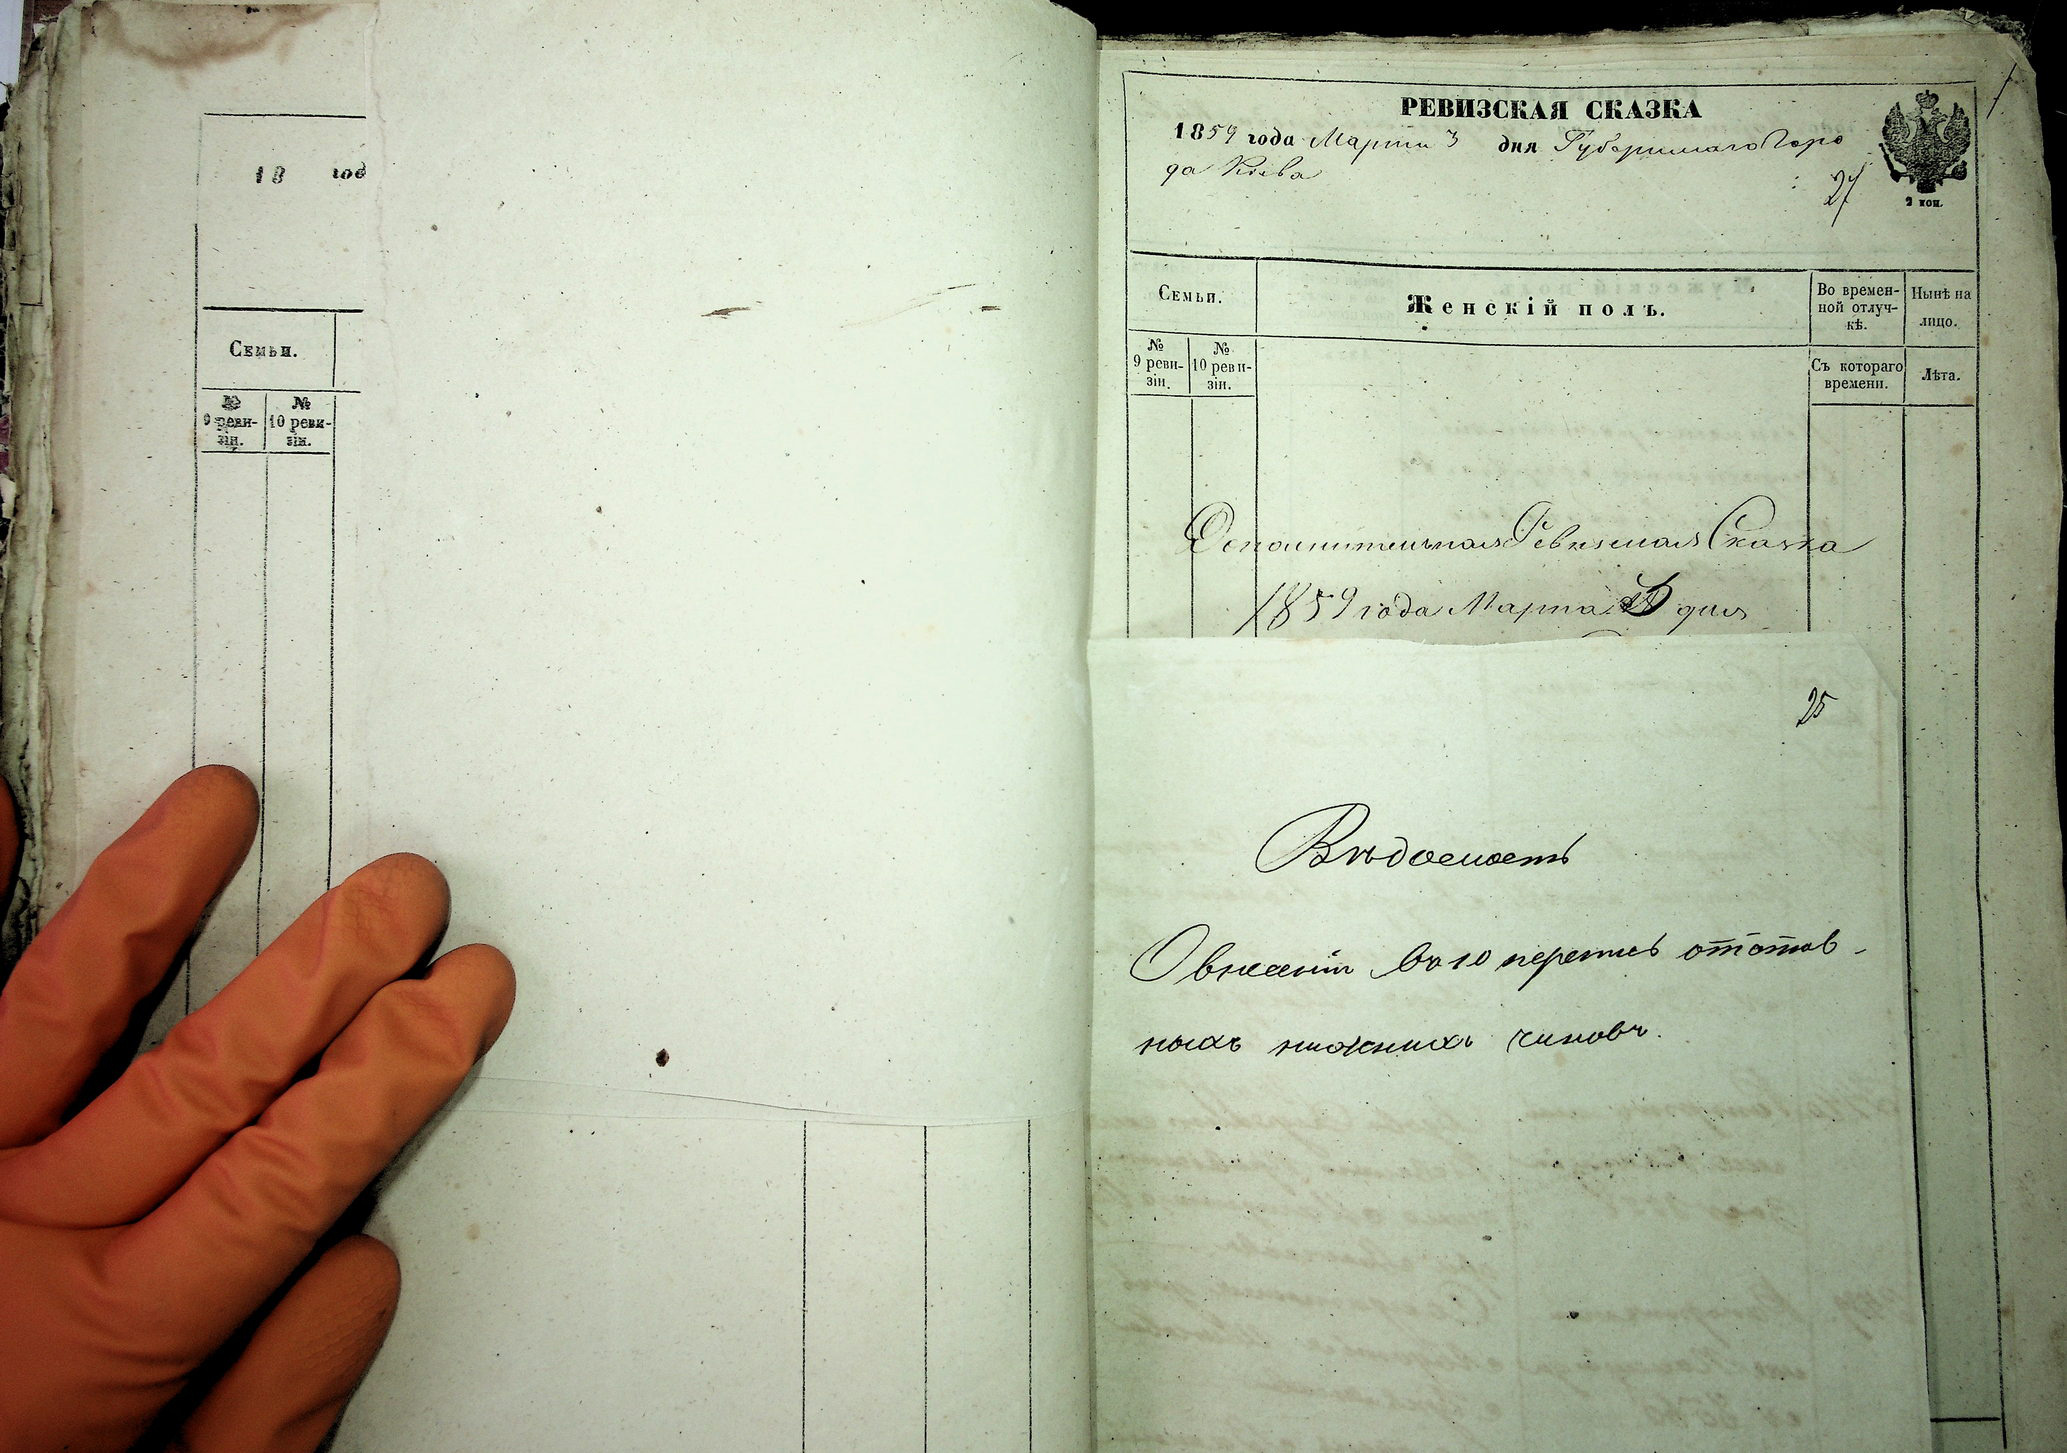 18 год
Семьи.
№ 9 реви-зіи.
№ 10 реви-зіи.
РЕВИЗСКАЯ СКАЗКА
1859 года Марта 3 дня Губернскаго Горо
да Кіева
27
2 коп.
Семьи.
Женскій полъ.
Во времен-ной отлуч-кѣ.
Нынѣ на лицо.
№ 9 реви-зіи.
№ 10 реви-зіи.
Съ котораго времени.
Лѣта.
Дополнительная Ревизская Сказка
1859 года Марта дня
25
Вѣдомость
О внесеніи въ 10 перепись отстав-
ныхъ нижнихъ чиновъ.